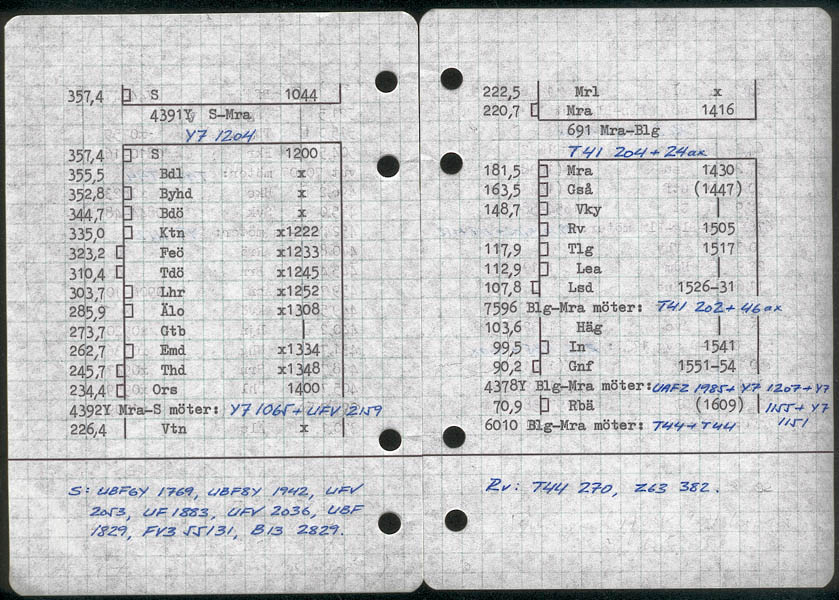 357,4 S 1044
4391Y S-Mra
Y7 1204
357,4 S 1200
355,5 Bdl x
352,8 Byhd x
344,7 Bdö x
335,0 Ktn x1222
323,2 Feö x1233
310,4 Tdö x1245
303,7 Lhr x1252
285,9 Älo x1308
273,7 Gtb |
262,7 Emd x1334
245,7 Thd x1348
234,4 Ors 1400
4392Y Mra-S möter: Y7 1065+ UFV 2159
226,4 Vtn x
S: UBF6Y 1769, UBF8Y 1942, UFV
2053, UF 1883, UFV 2036, UBF
1829, FV3 55131, B13 2829.
222,5 Mrl x
220,7 Mra 1416
691 Mra-Blg
T41 204 + 24ax
181,5 Mra 1430
163,5 Gså (1447)
148,7 Vky |
Rv 1505
117,9 Tlg 1517
112,9 Lea |
107,8 Lsd 1526-31
7596 Blg-Mra möter: T41 202+ 46ax
103,6 Häg |
99,5 In 1541
90,2 Gnf 1551-54
4378Y Blg-Mra möter: UAFZ 1985+ Y7 1207+Y7
70,9 Rbä (1609) 1155+ Y7
6010 Blg-Mra möter: T44+T44 1151
Rv: T44 270, Z63 382.